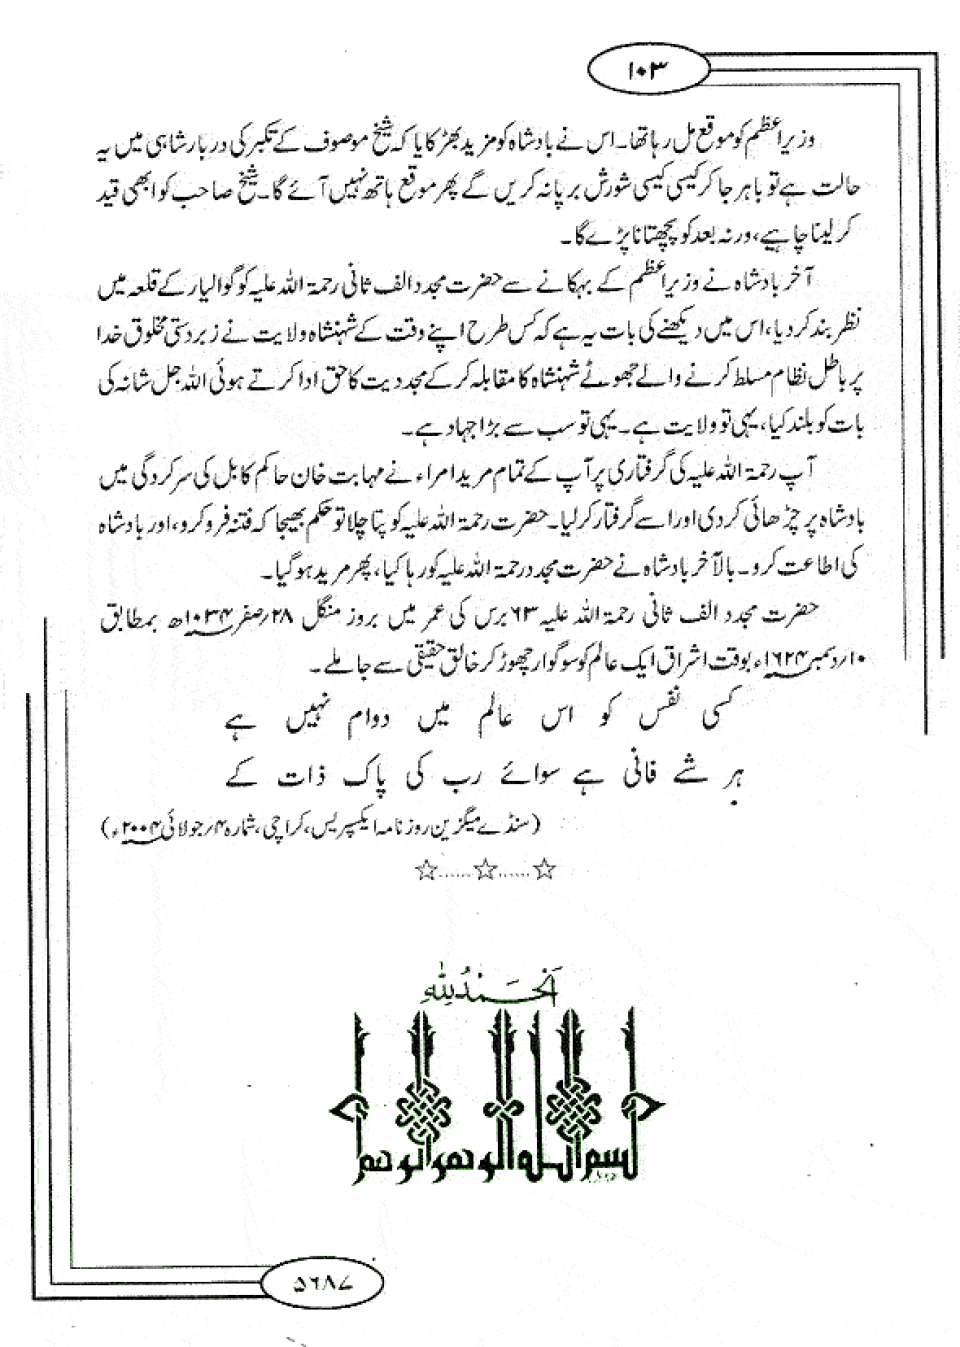 ۱۰۳
وزیراعظم کو موقع مل رہا تھا۔ اس نے بادشاہ کو مزید بھڑکایا کہ شیخ موصوف کے تکبر کی دربار شاہی میں یہ
حالت ہے تو باہر جا کر کیسی کیسی شورش برپا نہ کریں گے پھر موقع ہاتھ نہیں آئے گا۔ شیخ صاحب کو ابھی قید
کر لینا چاہیے، ورنہ بعد کو پچھتانا پڑے گا۔
آخر بادشاہ نے وزیراعظم کے بہکانے سے حضرت مجدد الف ثانی رحمۃ اللہ علیہ کو گوالیار کے قلعہ میں
نظر بند کر دیا، اس میں دیکھنے کی بات یہ ہے کہ کس طرح اپنے وقت کے شہنشاہ ولایت نے زبردستی مخلوق خدا
پر باطل نظام مسلط کرنے والے جھوٹے شہنشاہ کا مقابلہ کر کے مجددیت کا حق ادا کرتے ہوئی اللہ جل شانہ کی
بات کو بلند کیا، یہی تو ولایت ہے۔ یہی تو سب سے بڑا جہاد ہے۔
آپ رحمۃ اللہ علیہ کی گرفتاری پر آپ کے تمام مرید امراء نے مہابت خان حاکم کابل کی سرکردگی میں
بادشاہ پر چڑھائی کر دی اور اسے گرفتار کر لیا۔ حضرت رحمۃ اللہ علیہ کو پتا چلا تو حکم بھیجا کہ فتنہ فرو کرو، اور بادشاہ
کی اطاعت کرو۔ بالآخر بادشاہ نے حضرت مجدد رحمۃ اللہ علیہ کو رہا کیا، پھر مرید ہو گیا۔
حضرت مجدد الف ثانی رحمۃ اللہ علیہ ۶۳ برس کی عمر میں بروز منگل ۲۸/صفر ۱۰۳۴ھ بمطابق
۱۰/دسمبر ۱۶۲۴ء بوقت اشراق ایک عالم کو سوگوار چھوڑ کر خالق حقیقی سے جا ملے۔
کسی نفس کو اس عالم میں دوام نہیں ہے
ہر شے فانی ہے سوائے رب کی پاک ذات کے
(سنڈے میگزین روزنامہ ایکسپریس، کراچی، شمارہ ۴/جولائی ۲۰۰۴ء)
☆......☆......☆
اَلْحَمْدُ لِلّٰهِ
بسم الله الرحمن الرحيم
۵۶۸۷